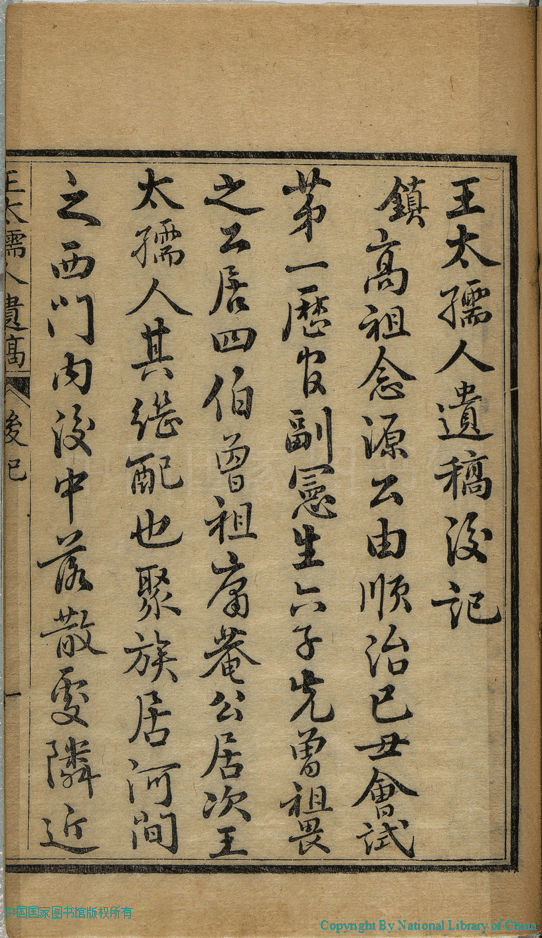 王太孺人遺稿後記
鎮高祖念源公由順治己丑會試
第一歷官副憲生六子先曾祖畏
之公居四伯曾祖庸菴公居次王
太孺人其繼配也聚族居河間
之西門內後中落散處隣近
王太孺人遺稿 後記 一
中国国家图书馆版权所有
Copyright By National Library of China